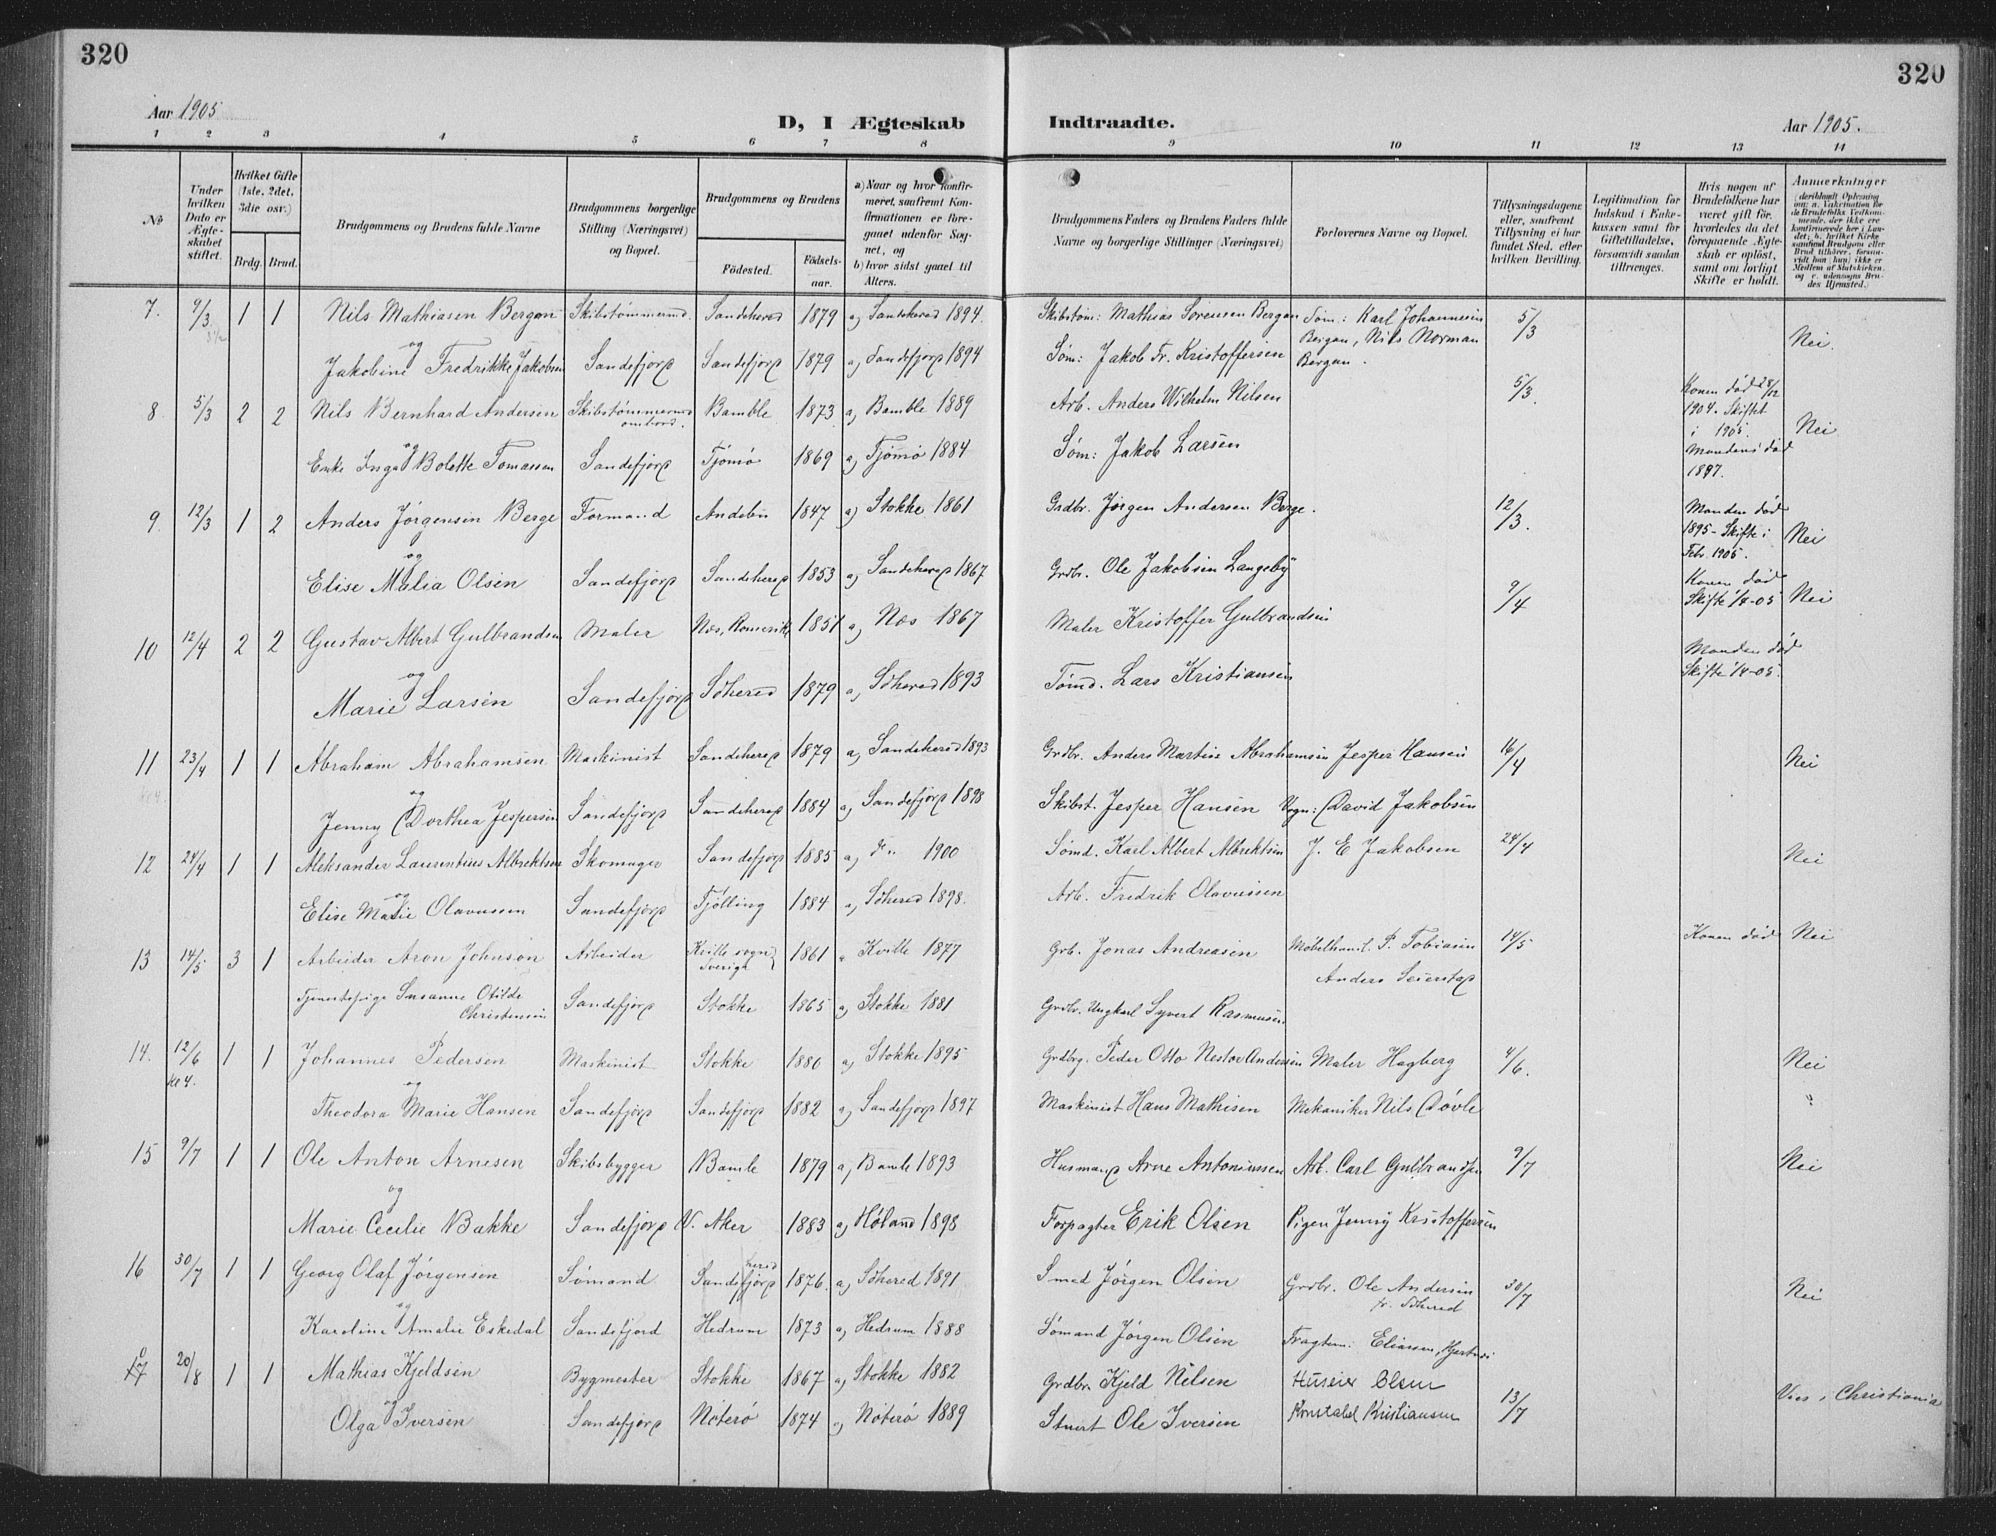 320
320
Aar 1905
D, I Ægteskab
Indtraadte.
Aar 1905.
1 2 3 4 5 6 7 8 9 10 11 12 13 14
No
Under hvilken Dato er Ægteskabet stiftet.
Hvilket Gifte (1ste, 2det, 3die osv.)
Brdg. Brud.
Brudgommens og Brudens fulde Navne
Brudgommens borgerlige Stilling (Næringsvei) og Bopæl.
Brudgommens og Brudens
Födested. Födselsaar.
a) Naar og hvor konfirmeret, saafremt Konfirmationen er foregaaet udenfor Sognet, og b) hvor sidst gaaet til Alters.
Brudgommens Faders og Brudens Faders fulde Navne og borgerlige Stillinger (Næringsvei)
Forlovernes Navne og Bopæl.
Tillysningsdagene eller, saafremt Tillysning ei har fundet Sted, efter hvilken Bevilling.
Legitimation for Indskud i Enkekassen samt for Giftetilladelse, forsaavidt saadan tiltrænges.
Hvis nogen af Brudefolkene har været gift før, hvorledes da det foregaaende Ægteskab er opløst, samt om lovligt Skifte er holdt.
Anmerkninger
7. 9/3 1 1 Nils Mathiasen Bergan Skibstømmermd. Sandeherred 1879 a) Sandeherred 1894. Skibstøm: Mathias Sørensen Bergan Tøm: Karl Johannesen 5/3 Nei.
og
Jakobine Fredrikke Jakobsen Sandefjord Sandefjord 1879 a) Sandefjord 1894 Søm: Jakob Fr. Kristoffersen Bergan, Nils Norman Bergan.
8 5/3 2 2 Nils Bernhard Andersen Skibstømmermd ombord. Bamble 1873 a) Bamble 1889 Arb. Anders Wilhelm Nilsen 5/3. Konen død 28/12 1904. Skiftet i 1905. Nei
og
Enke Inga Bolette Tomassen Sandefjord Tjømø 1869 a) Tjømø 1884 Søm: Jakob Larsen Manden død 1897.
9. 12/3 1 2 Anders Jørgensen Berge Formand Andebu 1847 a) Stokke 1861 Grdbr. Jørgen Andersen Berge. 12/3. Manden død 1895 - Skifte i Febr. 1905. Nei
og
Elise Malia Olsen Sandefjord Sandeherred 1853 a) Sandeherred 1867 Grdbr. Ole Jakobsen Langeby
10 12/4 2 2 Gustav Albert Gulbrandsen Maler Næs, Romerike 1851 a) Næs 1867 Maler Kristoffer Gulbrandsen 9/4 Konen død Skifte 1/4-05 Nei
og
Marie Larsen Sandefjord Sdherred 1879 a) Sdherred 1893 Tømd. Lars Kristiansen Manden død Skifte 1/4-05.
11 23/4 1 1 Abraham Abrahamsen Maskinist Sandeherred 1879 a) Sandeherred 1893 Grdbr. Anders Martin Abrahamsen Jesper Hansen 16/4 Nei
og
Jenny Dorthea Jespersen Sandefjord Sandeherred 1884 a) Sandefjord 1898 Skibst. Jesper Hansen Vogn: David Jakobsen
12 24/4 1 1 Aleksander Laurentius Albrektsen Skomager Sandefjord 1885 a) F" 1900 Sømd. Karl Albert Albrektsen J. E Jakobsen 24/4 Nei
og
Elise Marie Olavussen Sandefjord Tjølling 1884 a) Sdherred 1898. Arb. Fredrik Olavussen
13 14/5 3 1 Arbeider Aron Johnson Arbeider Kville sogn Sverige 1861 " Kville 1877 Grb. Jonas Andreasen Møbelhandl. P. Tobiasen 14/5 Konen død Nei
Anders Seierstad
Tjenestepige Susanne Otilde Christensen Sandefjord Stokke 1865 a) Stokke 1881 Grdbr. Ungkarl Syvert Rasmussen
14. 12/6 Kl 4. 1 1 Johannes Pedersen Maskinist Stokke 1880 a) Stokke 1895 Grdbrg. Peder Otto Nestor Andersen Maler Hagberg 4/6. Nei
og
Theodora Marie Hansen Sandefjord Sandefjord 1882 a) Sandefjord 1897 Maskinist Hans Mathisen Mekaniker Nils Døvle "
15 9/7 1 1 Ole Anton Arnesen Skibsbygger Bamle 1879 a) Bamle 1893 Husmand Arne Antoniussen Arb. Carl Gulbrandsen 9/7 Nei
og
Marie Cecilie Bakke Sandefjord V. Aker 1883 a) Høland 1898 Forpagter Erik Olsen Pigen Jenny Kristoffersen
16 30/7 1 1 Georg Olaf Jørgensen Sømand Sandefjord herred 1876. a) Sdherred 1891 Smed Jørgen Olsen Grdbr. Ole Andersen fr. Sdherred 30/7 Nei
og
Karoline Amalie Eskedal Sandefjord Hedrum 1873 a) Hedrum 1888 Sømand Jørgen Olsen Fragtem: Eliassen, Hjertnes
17 20/8 1 1 Mathias Kjeldsen Bygmester Stokke 1867 a) Stokke 1882 Grdbr Kjeld Nilsen Huseier Olsen 13/7 Viet i Christiania
og
Olga Iversen Sandefjord Nøterø 1874 a) Nøterø 1889 Stuert Ole Iversen Konstabel Kristiansen